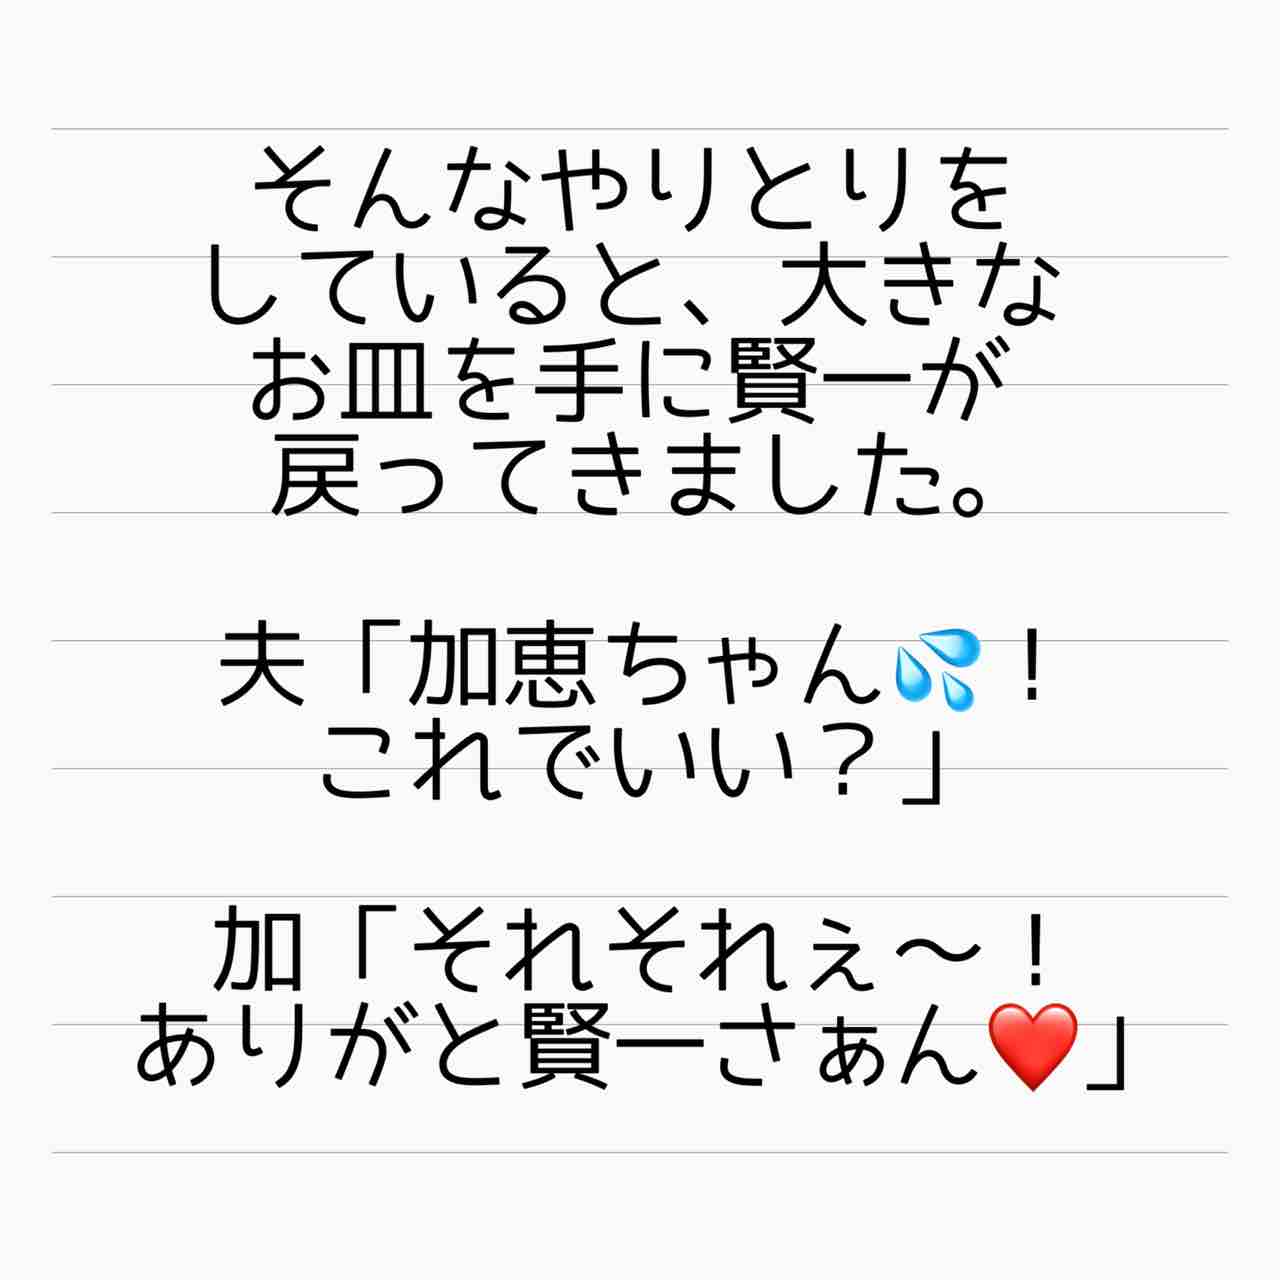 そんなやりとりを
していると、大きな
お皿を手に賢一が
戻ってきました。
夫「加恵ちゃん💦！
これでいい？」
加「それそれぇ〜！
ありがと賢一さぁん❤️」